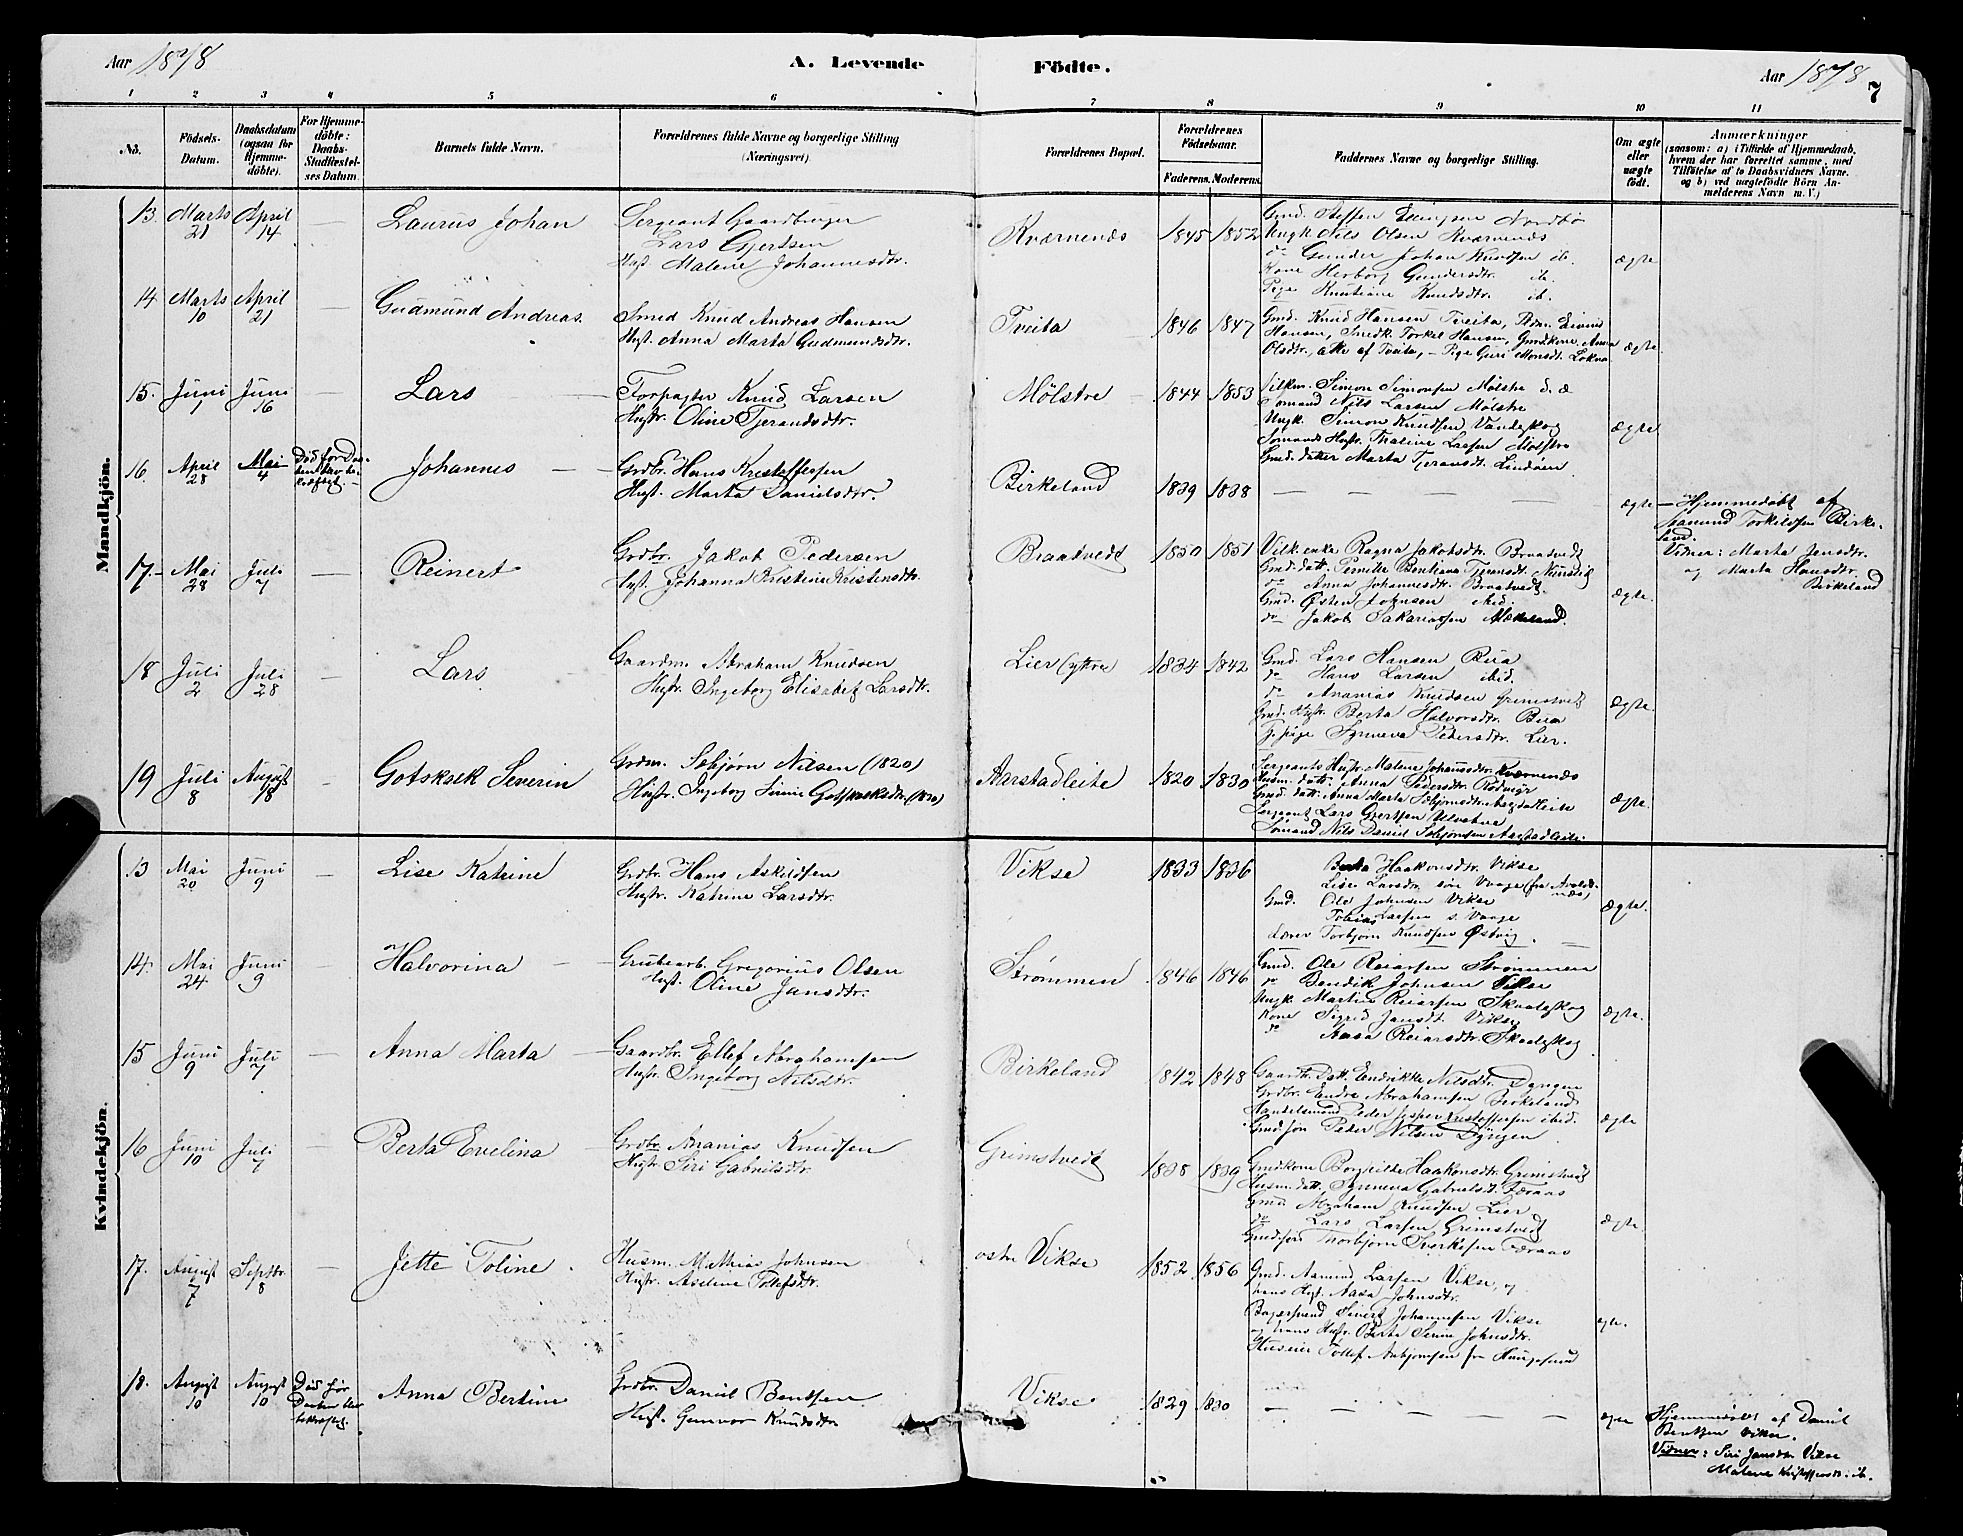 Aar 1878
A. Levende Födte.
Aar 1878
7
1 2 3 4 5 6 7 8 9 10 11
No.
Födsels-Datum.
Daabsdatum (ogsaa for Hjemme-döbte).
For Hjemme-döbte: Daabs-Stadfæstel-ses Datum.
Barnets fulde Navn.
Forældrenes fulde Navne og borgerlige Stilling (Næringsvei)
Forældrenes Bopæl.
Forældrenes Födselsaar.
Faderens. Moderens.
Faddernes Navne og borgerlige Stilling.
Om ægte eller uægte födt.
Anmærkninger
(saasom: a) i Tilfælde af Hjemmedaab,
hvem der har forrettet samme, med
Tilföielse af to Daabsvidners Navne.
og b) ved uægtefödte Börn An-
melderens Navn m. V.)
Mandkjön.
13. Marts 21 April 14 — Laurus Johan
Sergeant Gaardbruger
Lars Gjertsen
Hust. Malene Johannesdtr.
Kværnenæs 1845 1852
Ungk. Nils Olsen Kværnenæs
do Gunder Johan Knudsen ib.
Kone Herborg Gundersdtr. ib.
Pige Kristiane Knudsdtr. ib.
ægte
14 Marts 10 April 21 — Gudmund Andreas
Smed Knud Andreas Hansen
Hust. Anna Marta Gudmundsdtr.
Tveita 1846 1847
Gmd. Knud Hansen Tveita,
Hansen, Smedk. Torkel Hansen, Gmdkone Anna
Olsdtr., alle af Tveita, – Pige Guri Monsdt.
ægte
15. Juni 1 Juni 16 — Lars
Forpagter Knud Larsen
Hustr. Oline Tjerandsdtr.
Mølstre 1844 1853
Simon Simonsen Mølstre
Sømand Nils Larsen Mølstre
Ungk. Simon Knudsen Vandaskog
Sømands Hustr. Taline Larsen Mølstre
Gmd. datter Marta Tjerandsdt. Lindøen
ægte
16. April 28 Mai 4 Død før Daa-
Johannes —
Grdbr. Hans Kristoffersen
Hust. Marta Danielsdtr.
Birkeland 1839 1838
— — — — —
ægte — Hjemmedøbt af
Aamund Torkildsen Birke-
land.
Vidner: Marta Jansdtr.
og Marta Hansdtr.
Birkeland
17. – Mai 28 Juli 7 — Reinert
Grdbr. Jakob Pedersen
Hust. Johanna Kristine Kristensdtr.
Braatvedt 1850 1851
Vilk. enke Ragna Jakobsdtr. Braatvedt
Gmd. datt. Pernille Bentiana
do Anna Johannesdtr. Braatvedt.
Gmd. Østen Johnsen ibid.
do Jakob Sakariassen
ægte.
18 Juli 2 Juli 28 — Lars
Gaardm. Abraham Knudsen
Hustr. Ingeborg Elisabet Larsdtr.
Lier (yttre) 1834 1842
Gmd. Lars Hansen Bua
do Hans Larsen ibid.
do Ananias Knudsen Grimstvedt
Gmd. Hustr. Berta Halvorsdtr. Bua
Tj.pige Synneva Pedersdtr. Lier.
ægte.
19 Juli 8 August 18 — Gotskalk Severin
Grdm. Sebjørn Nilsen (1820)
Hustr. Ingeborg Serine Gotskalksdtr. (1830)
Aarstadleite 1820 1830
Sergeants Hustr. Malene Johannesdtr. Kværnenæs
Husm. datt. Anna Pedersdtr.
Gmd. datt. Anna Marta Sebjørnsdtr. Aarstadleite
Sergeant Lars Gjertsen
Sømand Nils Daniel Sebjørnsen Aarstadleite
ægte.
Kvindekjön.
13 Mai 20 Juni 9 — Lise Katrine
Grdbr. Hans Askildsen
Hustr. Katrine Larsdtr.
Vikse 1833 1836
Berta Haakonsdtr. Vikse
Lise Larsdtr. søre Vaage (fra Avalds-
næs)
Gmd. Ole Johnsen Vikse
Tobias Larsen s. Vaage
Lærer Torbjørn Knudsen Østvig.
ægte.
14. Mai 24 Juni 9 — Halvorina —
Grubearb. Gregorius Olsen
Hust. Oline Jansdtr.
Strømmen 1846 1846
Gmd. Ole Reiarsen Strømmen
do Bendik Johnsen Vikse
Ungk. Martin Reiarsen Skaaleskog
Kone Sigrid Jansdt. Vikse
do Aasa Reiarsdtr. Skaaleskog
ægte.
15 Juni 9 Juli 7 — Anna Marta —
Gaardbr. Ellef Abrahamsen
Hustr. Ingeborg Nilsdtr.
Birkeland 1842 1848
Gaardbr. Datt. Endrikke Nilsdtr. Dyngen
Grdbr. Endre Abrahamsen Birkeland
Handelsmand Peder Jesper Kristoffersen ibid.
Gmdsøn Peder Nilsen Dyngen
ægte
16 Juni 10 Juli 7 — Berta Evelina
Grdbr. Ananias Knudsen
Hustr. Siri Gabrielsdtr.
Grimstvedt 1838 1839
Gmdkone Borghilde Haakonsdtr. Grimstvedt
Husm. datt. Synneva Gabrielsdt. Færaas
Gmd. Abraham Knudsen Lier
do Lars Larsen Grimstvedt
Gmdsøn Thorbjørn Færaas
ægte.
17. August 7 Septbr. 8 — Jette Toline.
Husm. Mathias Johnsen
Hustr. Aseline Tollefsdtr.
østre Vikse 1852 1856
Gmd. Aamund Larsen Vikse, og
hans Hust. Aasa Johnsdtr.
Bagersvend Sivert Johannesen Vikse
og hans Hustr. Berta Serine Johnsdtr.
Tollef Asbjørnsen fra Haugesund
ægte.
18. August 10 August 10 Død før
Daaben blev
bekræftet.
Anna Bertine
Grdbr. Daniel Bentsen
Hust. Gunvor Knudsdtr
Vikse 1829 1830
— — — — — —
ægte Hjemmedøbt af Daniel
Bentsen Vikse.
Vidner: Siri Jansdtr. Vikse
Malene Kristoffersdtr. ib.